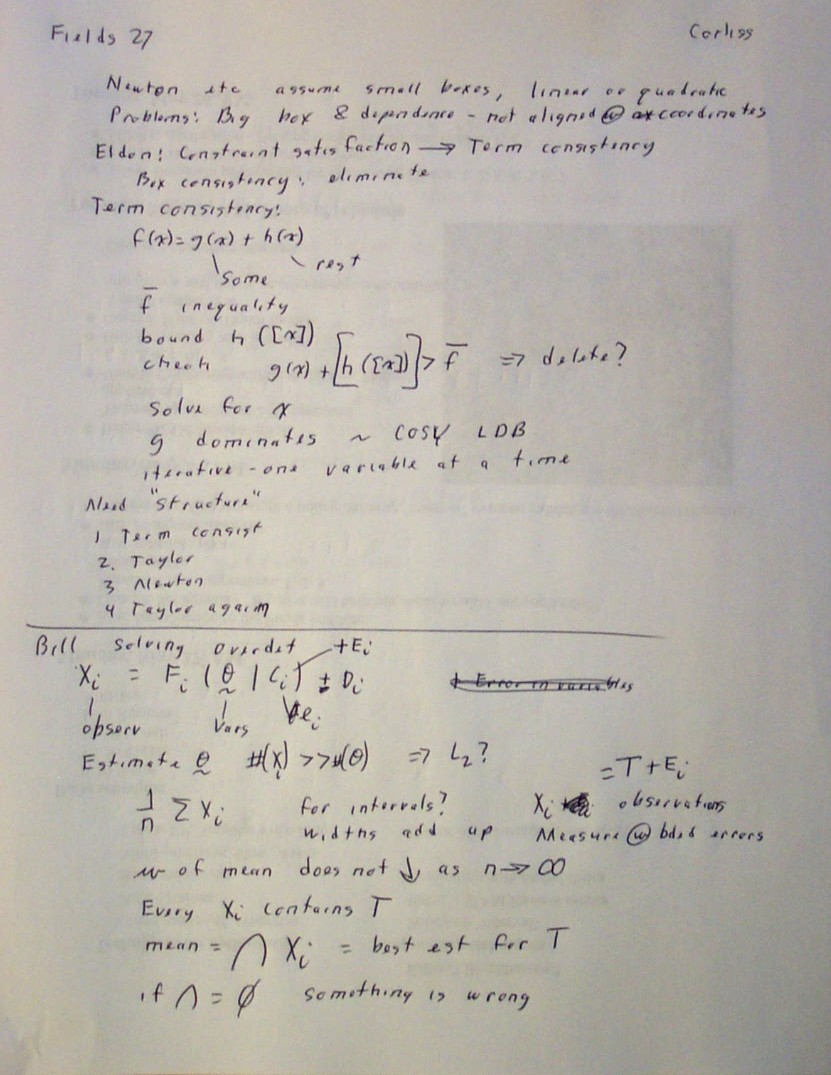 Fields 27 Corliss
Newton etc assume small boxes, linear or quadratic
Problems: Big box & dependence - not aligned @ coordinates
Eldon: Constraint satisfaction → Term consistency
Box consistency: eliminate
Term consistency:
f(x) = g(x) + h(x)
some rest
f̅ inequality
bound h([x])
check g(x) + [h([x])] > f̅ ⇒ delete?
Solve for x
g dominates ~ COSY LDB
iterative - one variable at a time
Need "structure"
1 Term consist
2. Taylor
3 Newton
4 Taylor again
Bill solving overdet +Eᵢ
Xᵢ = Fᵢ (θ | Cᵢ) ± Dᵢ
Error in variables
observ Vars eᵢ
Estimate θ #(Xᵢ) >> #(θ) ⇒ L₂?
= T + Eᵢ
1/n Σ Xᵢ for intervals? Xᵢ observations
widths add up Measure @ bdd errors
w of mean does not ↓ as n → ∞
Every Xᵢ contains T
mean = ∩ Xᵢ = best est for T
if ∩ = ∅ something is wrong